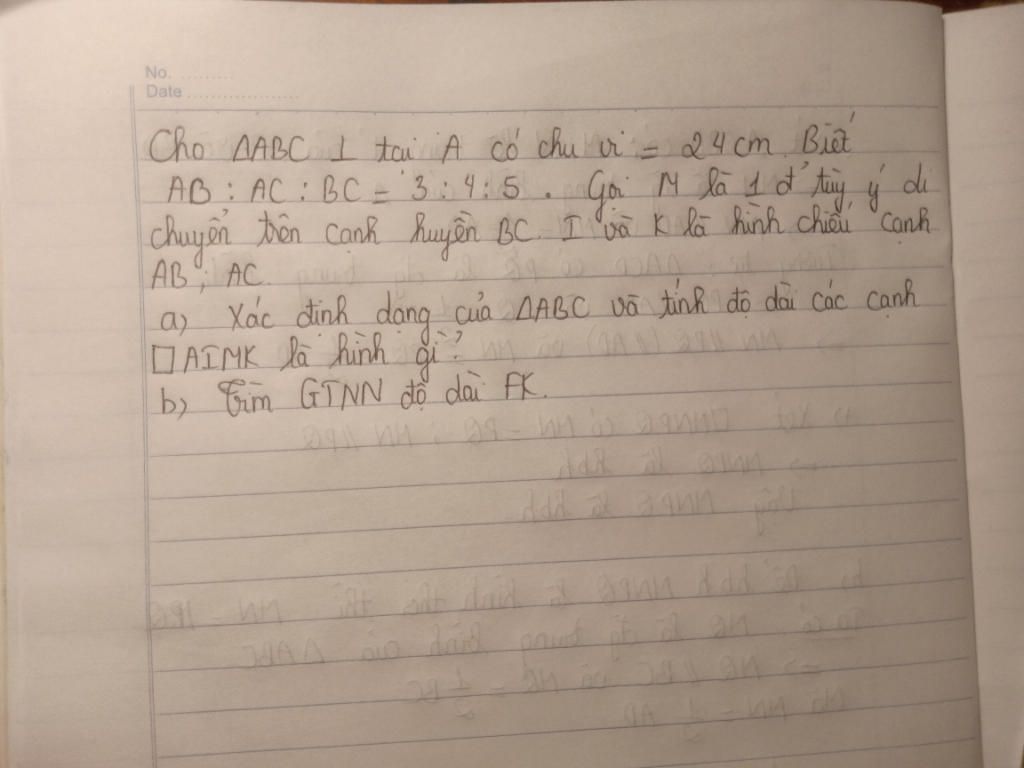 No. .........
Date ...................
Cho ΔABC ⊥ tại A có chu vi = 24cm. Biết
AB : AC : BC = 3 : 4 : 5 . Gọi M là 1 đ' tùy ý di
chuyển trên cạnh huyền BC. I và K là hình chiếu cạnh
AB ; AC.
a) Xác định dạng của ΔABC và tính độ dài các cạnh
□AIMK là hình gì?
b) Tìm GTNN độ dài FK.